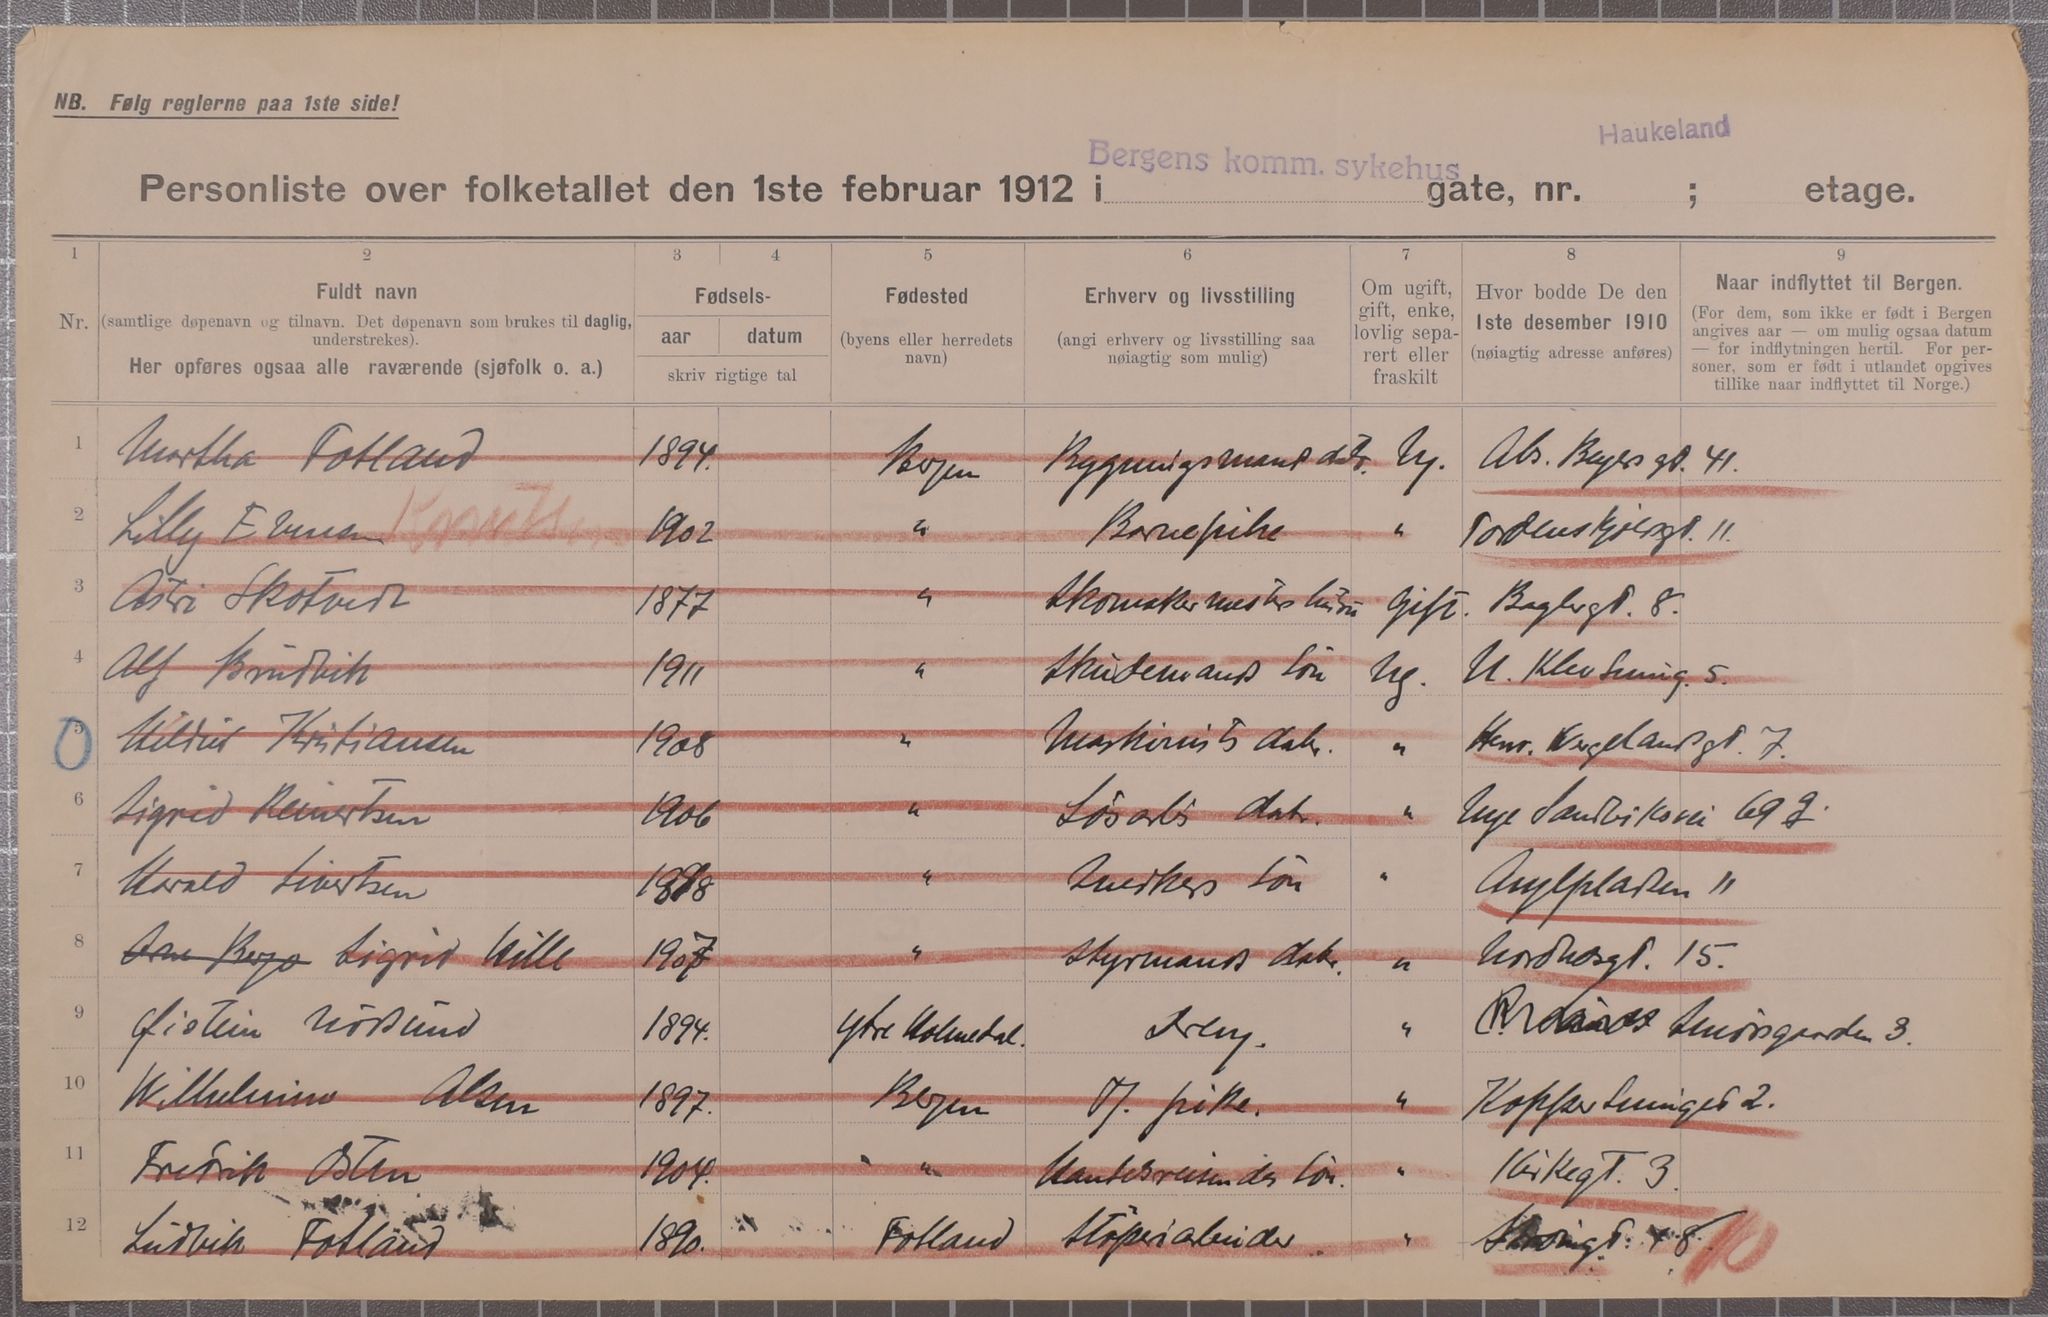 NB. Følg reglerne paa 1ste side!
Haukeland
Bergens komm. sykehus
Personliste over folketallet den 1ste februar 1912 i gate, nr. ; etage.
1 2 3 4 5 6 7 8 9
Nr.
Fuldt navn
(samtlige døpenavn og tilnavn. Det døpenavn som brukes til daglig, understrekes).
Her opføres ogsaa alle raværende (sjøfolk o. a.)
Fødsels-
aar datum
skriv rigtige tal
Fødested
(byens eller herredets navn)
Erhverv og livsstilling
(angi erhverv og livsstilling saa nøiagtig som mulig)
Om ugift, gift, enke, lovlig separert eller fraskilt
Hvor bodde De den
1ste desember 1910
(nøiagtig adresse anføres)
Naar indflyttet til Bergen.
(For dem, som ikke er født i Bergen angives aar — om mulig ogsaa datum — for indflytningen hertil. For personer, som er født i utlandet opgives tillike naar indflyttet til Norge.)
1 Martha Totland 1894. Bergen Bygningsmands datr. Ug. Abs. Beyers gt. 41.
2 Lilly 1902 " Barnepike " Tordenskjolsgt. 11.
3 Astri Skotvedt 1877 " Skomakermesters hustru Gift. Baglergt. 8.
4 Alf Brudvik 1911 " Skudemands søn Ug. 5.
5 Kristiansen 1908 " Maskinists datr. " Henr. Wergelandsgt. 7.
6 Sigrid Reinertsen 1906 " Løsarb's datr. " Nye Sandviksvei 69
7 Harald Sivertsen " Snedkers søn " 11
8 Sigrid Wille 1907 " Styrmands datr. " Nordnesgt. 15.
9 Øistein 1894. Ytre Holmedal. Dreng. " Smørsgaarden 3.
10 Wilhelmine Olsen 1897. Bergen pike. " 2.
11 Fredrik Osten 1904. " Handelsreisendes søn. " Kirkegt. 3.
12 Ludvik Totland 1890. Totland Støperiarbeider "